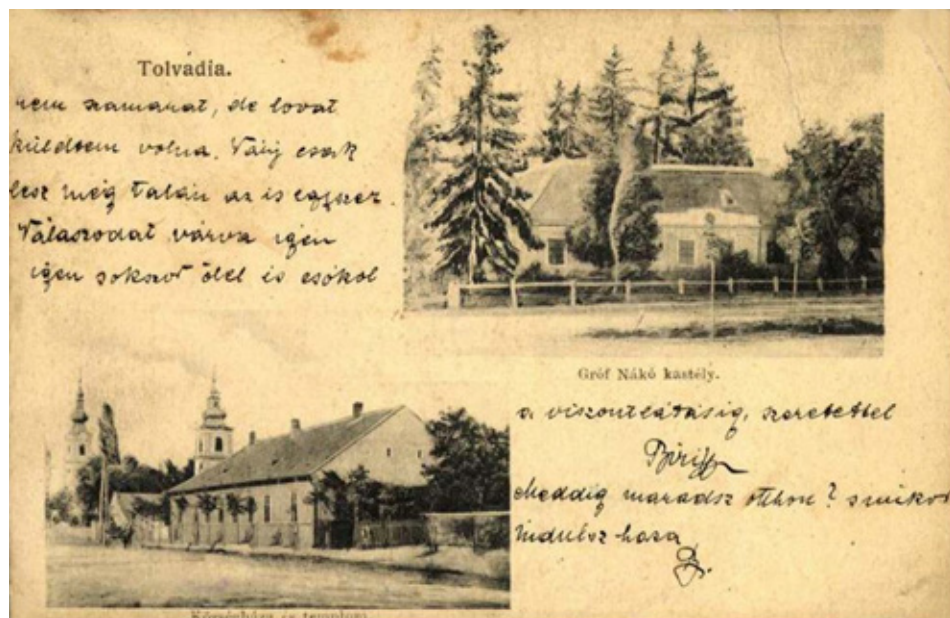 Tolvádia.
nem szamarat, de lovat
küldtem volna. Várj csak
lesz még talán az is egyszer.
Válaszodat várva igen
igen sokszor ölel és csókol
Gróf Nákó kastély.
a viszontlátásig, szeretettel
meddig maradsz otthon? s mikor
indulsz haza
Községháza és templom